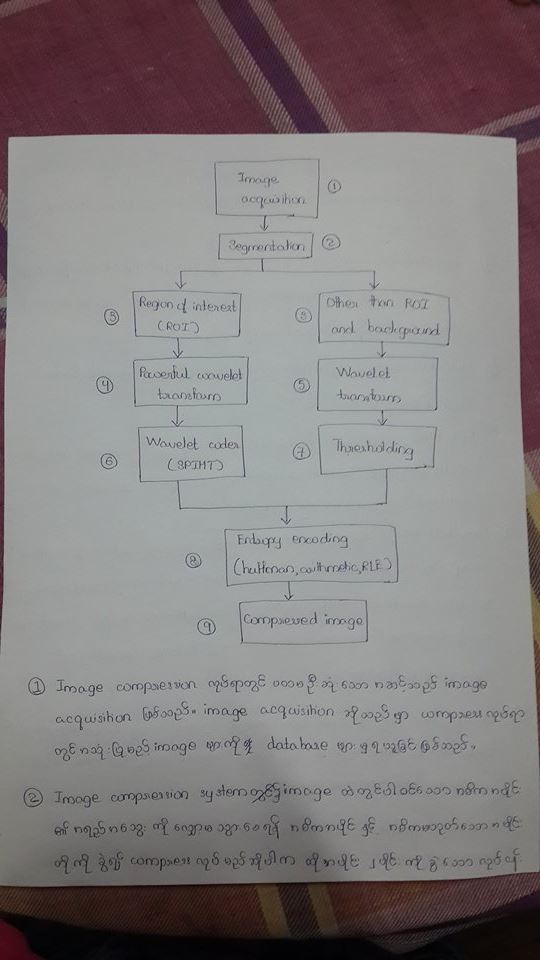 Image
acquisition ①
Segmentation ②
③ Region of interest
(ROI)
③ Other than ROI
and background
④ Powerful wavelet
transform
⑤ Wavelet
transform
⑥ Wavelet coder
(SPIHT)
⑦ Thresholding
⑧ Entropy encoding
(huffman, arithmetic, RLE)
⑨ Compressed image
① Image compression လုပ်ရာတွင် ပထမဦးဆုံးသော အဆင့်သည် image
acquisition ဖြစ်သည်။ image acquisition ဆိုသည်မှာ compress လုပ်ရာ
တွင် အသုံးပြုမည့် image များကို database များမှ ရယူခြင်းဖြစ်သည်။
② Image compression system တွင် image ထဲတွင် ပါဝင်သော အဓိကအပိုင်း
၏ အရည်အသွေး ကို လျော့မသွားစေရန် အဓိကအပိုင်း နှင့် အဓိကမဟုတ်သော အပိုင်း
တို့ကို ခွဲ၍ compress လုပ်မည်ဆိုပါက ထိုအပိုင်း ၂ပိုင်း ကို ခွဲသော လုပ်ငန်း